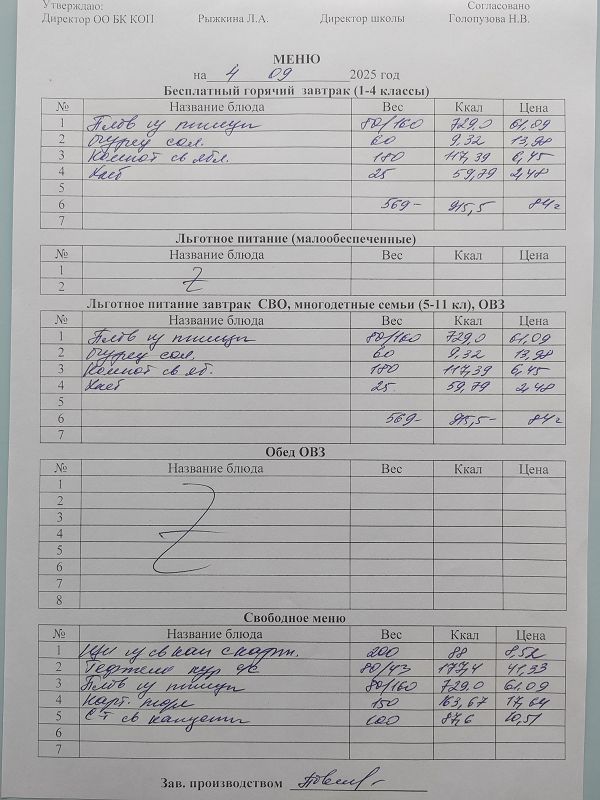 Утверждаю: Согласовано
Директор ОО БК КОП Рыжкина Л.А. Директор школы Голопузова Н.В.
МЕНЮ
на 4 09 2025 год
Бесплатный горячий завтрак (1-4 классы)
№ Название блюда Вес Ккал Цена
1 Плов из птицы 80/160 729,0 61,09
2 Огурец сол. 60 9,32 13,98
3 Компот св ябл. 180 117,39 6,45
4 Хлеб 25 59,79 2,48
5
6 569- 915,5 84=
7
Льготное питание (малообеспеченные)
№ Название блюда Вес Ккал Цена
1
2
Льготное питание завтрак СВО, многодетные семьи (5-11 кл), ОВЗ
№ Название блюда Вес Ккал Цена
1 Плов из птицы 80/160 729,0 61,09
2 Огурец сол. 60 9,32 13,98
3 Компот св яб. 180 117,39 6,45
4 Хлеб 25 59,79 2,48
5
6 569- 915,5- 84=
7
Обед ОВЗ
№ Название блюда Вес Ккал Цена
1
2
3
4
5
6
7
8
Свободное меню
№ Название блюда Вес Ккал Цена
1 Щи из св кап с карт. 200 88 8,52
2 кур 80/43 177,4 41,33
3 Плов из птицы 80/160 729,0 61,09
4 Карт. 150 163,67 17,64
5 С-т св капусты 100 87,6 10,51
6
7
Зав. производством